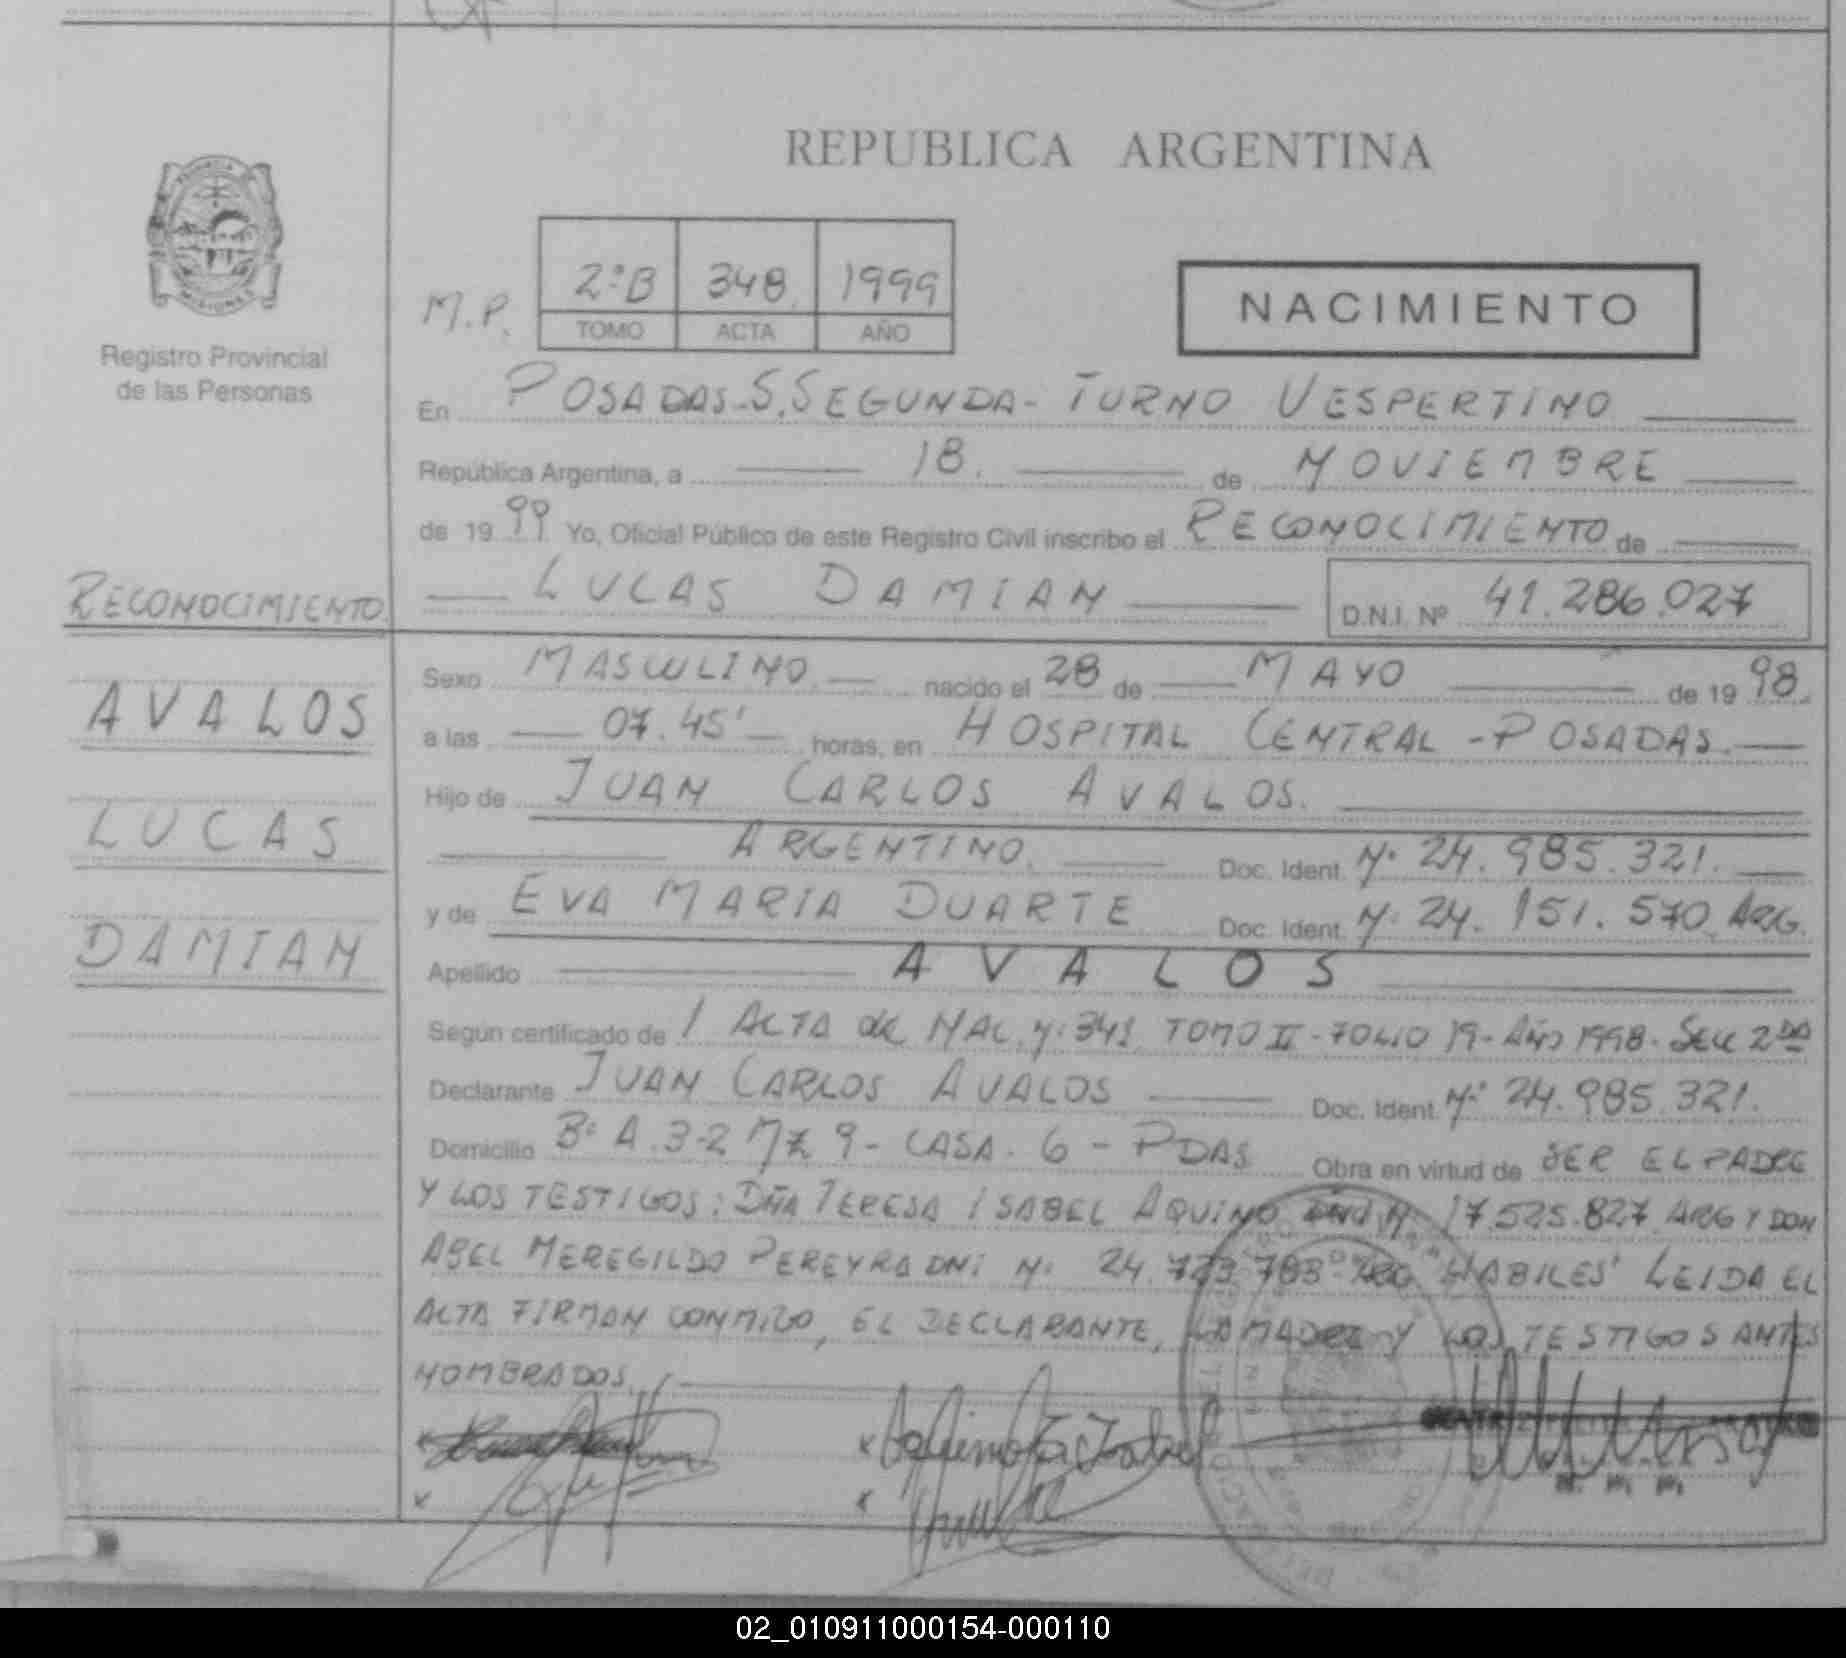 REPUBLICA ARGENTINA
PROVINCIA
MISIONES
Registro Provincial
de las Personas
M.P.
2ºB 348 1999
TOMO ACTA AÑO
NACIMIENTO
En POSADAS-S.SEGUNDA-TURNO VESPERTINO
República Argentina, a 18. de NOVIEMBRE
de 1999 Yo, Oficial Público de este Registro Civil inscribo el RECONOCIMIENTO de
LUCAS DAMIAN D.N.I. Nº 41.286.027
RECONOCIMIENTO
AVALOS
LUCAS
DAMIAN
Sexo MASCULINO nacido el 28 de MAYO de 1998.
a las 07.45' horas, en HOSPITAL CENTRAL-POSADAS.
Hijo de JUAN CARLOS AVALOS.
ARGENTINO. Doc. Ident. Nº 24.985.321.
y de EVA MARIA DUARTE Doc. Ident. Nº 24.151.570 ARG.
Apellido AVALOS
Según certificado de / ACTA de NAC. Nº 341 TOMO II-FOLIO 19-Año 1998. Secc 2DA
Declarante JUAN CARLOS AVALOS Doc. Ident. Nº 24.985.321.
Domicilio Bº A.3-2 Mz 9-CASA. 6-PDAS Obra en virtud de SER EL PADRE
Y LOS TESTIGOS: DÑA TERESA ISABEL AQUINO DNI Nº 17.525.827 ARG Y DON
ABEL MEREGILDO PEREYRA DNI Nº 24. ARG "HABILES" LEIDA EL
ACTA FIRMAN CONMIGO, EL DECLARANTE, LA MADRE Y LOS TESTIGOS ANTES
NOMBRADOS
Aquino Isabel
02_010911000154-000110